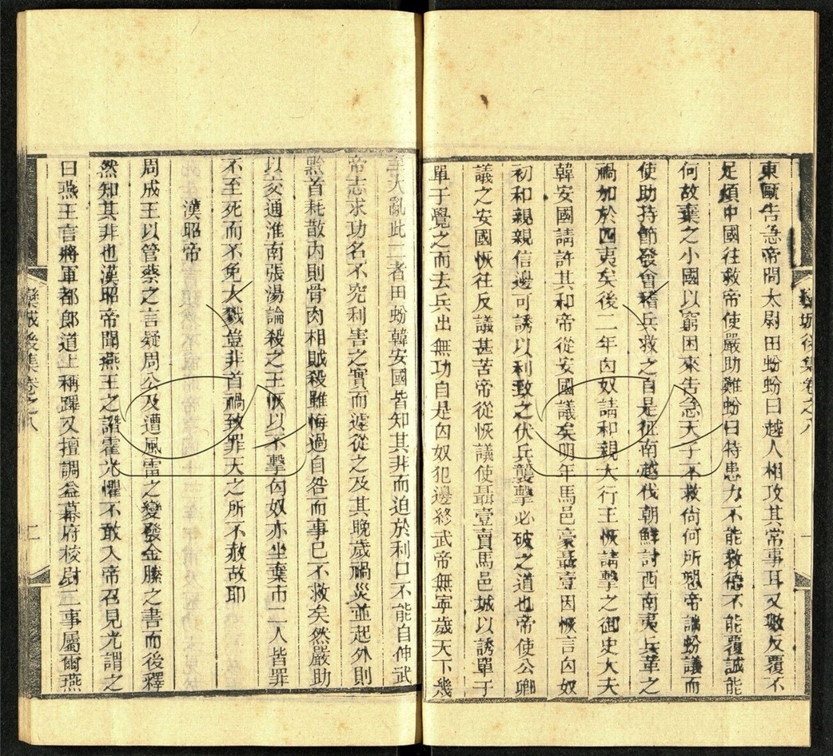 東甌告急帝問太尉田蚡蚡曰越人相攻其常事耳又數反覆不
足煩中國往救帝使嚴助難蚡曰特患力不能救德不能覆誠能
何故棄之小國以窮困來告急天子不救尙何所愬帝詘蚡議而
使助持節發會稽兵救之自是征南越伐朝鮮討西南夷兵革之
禍加於四夷矣後二年匈奴請和親大行王恢請擊之御史大夫
韓安國請許其和帝從安國議矣明年馬邑豪聶壹因恢言匈奴
初和親親信邊可誘以利致之伏兵襲擊必破之道也帝使公卿
議之安國恢往反議甚苦帝從恢議使聶壹賣馬邑城以誘單于
單于覺之而去兵出無功自是匈奴犯邊終武帝無寧歲天下幾
欒城後集卷之八
一
至大亂此二者田蚡韓安國皆知其非而迫於利口不能自伸武
帝志求功名不究利害之實而遽從之及其晚歲禍災並起外則
黔首耗散內則骨肉相賊殺雖悔過自咎而事已不救矣然嚴助
以交通淮南張湯論殺之王恢以不擊匈奴亦坐棄市二人皆罪
不至死而不免大戮豈非首禍致罪天之所不赦故耶
漢昭帝
周成王以管蔡之言疑周公及遭風雷之變發金縢之書而後釋
然知其非也漢昭帝聞燕王之譖霍光懼不敢入帝召見光謂之
曰燕王言將軍都郎道上稱蹕又擅調益幕府校尉二事屬爾燕
欒城後集卷之八
二